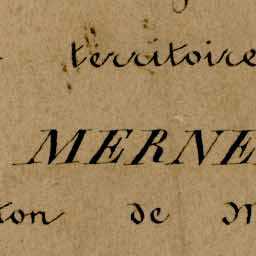 territoire
MERNE
ton de M